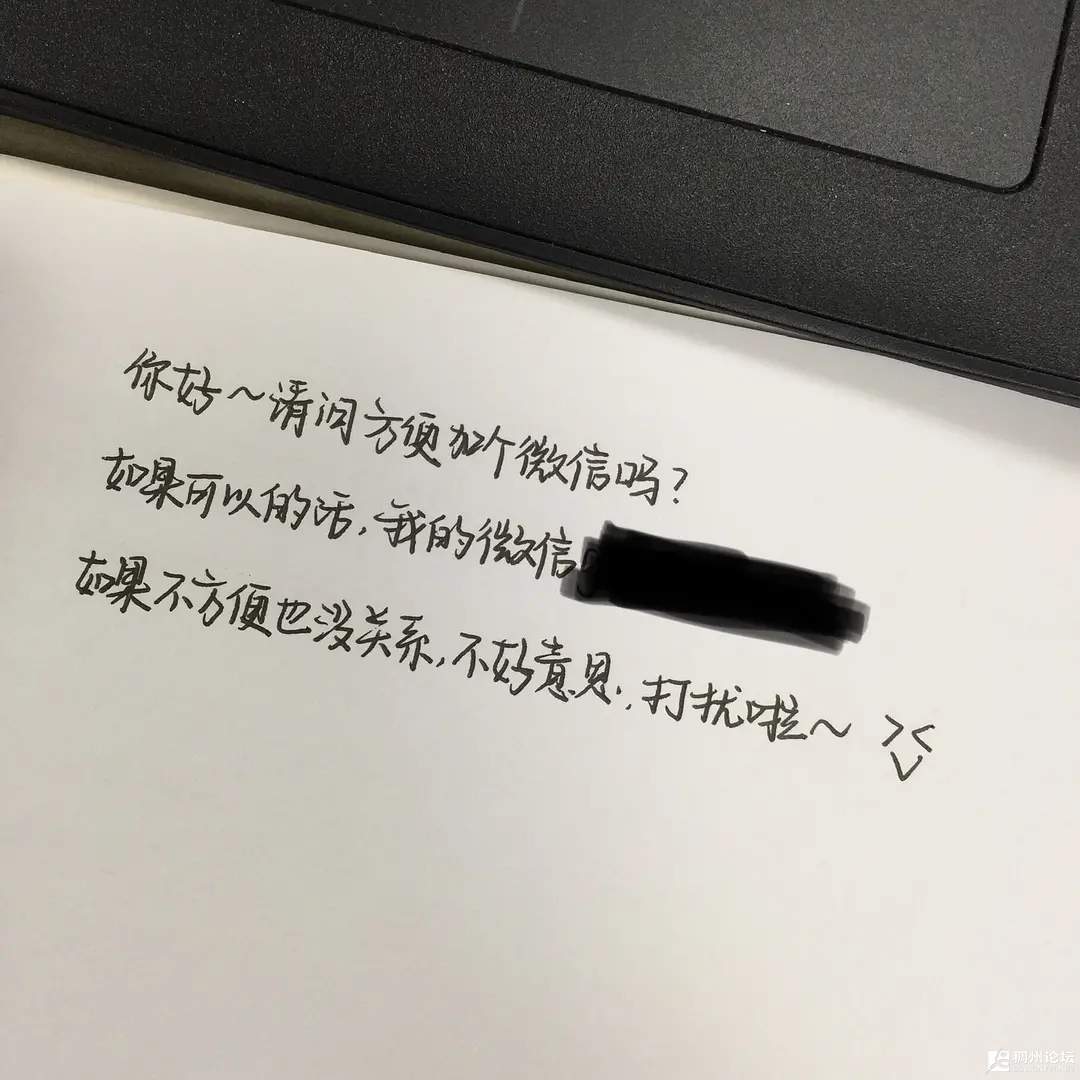 你好～请问方便加个微信吗？
如果可以的话，我的微信
如果不方便也没关系，不好意思，打扰啦～ ><
稠州论坛